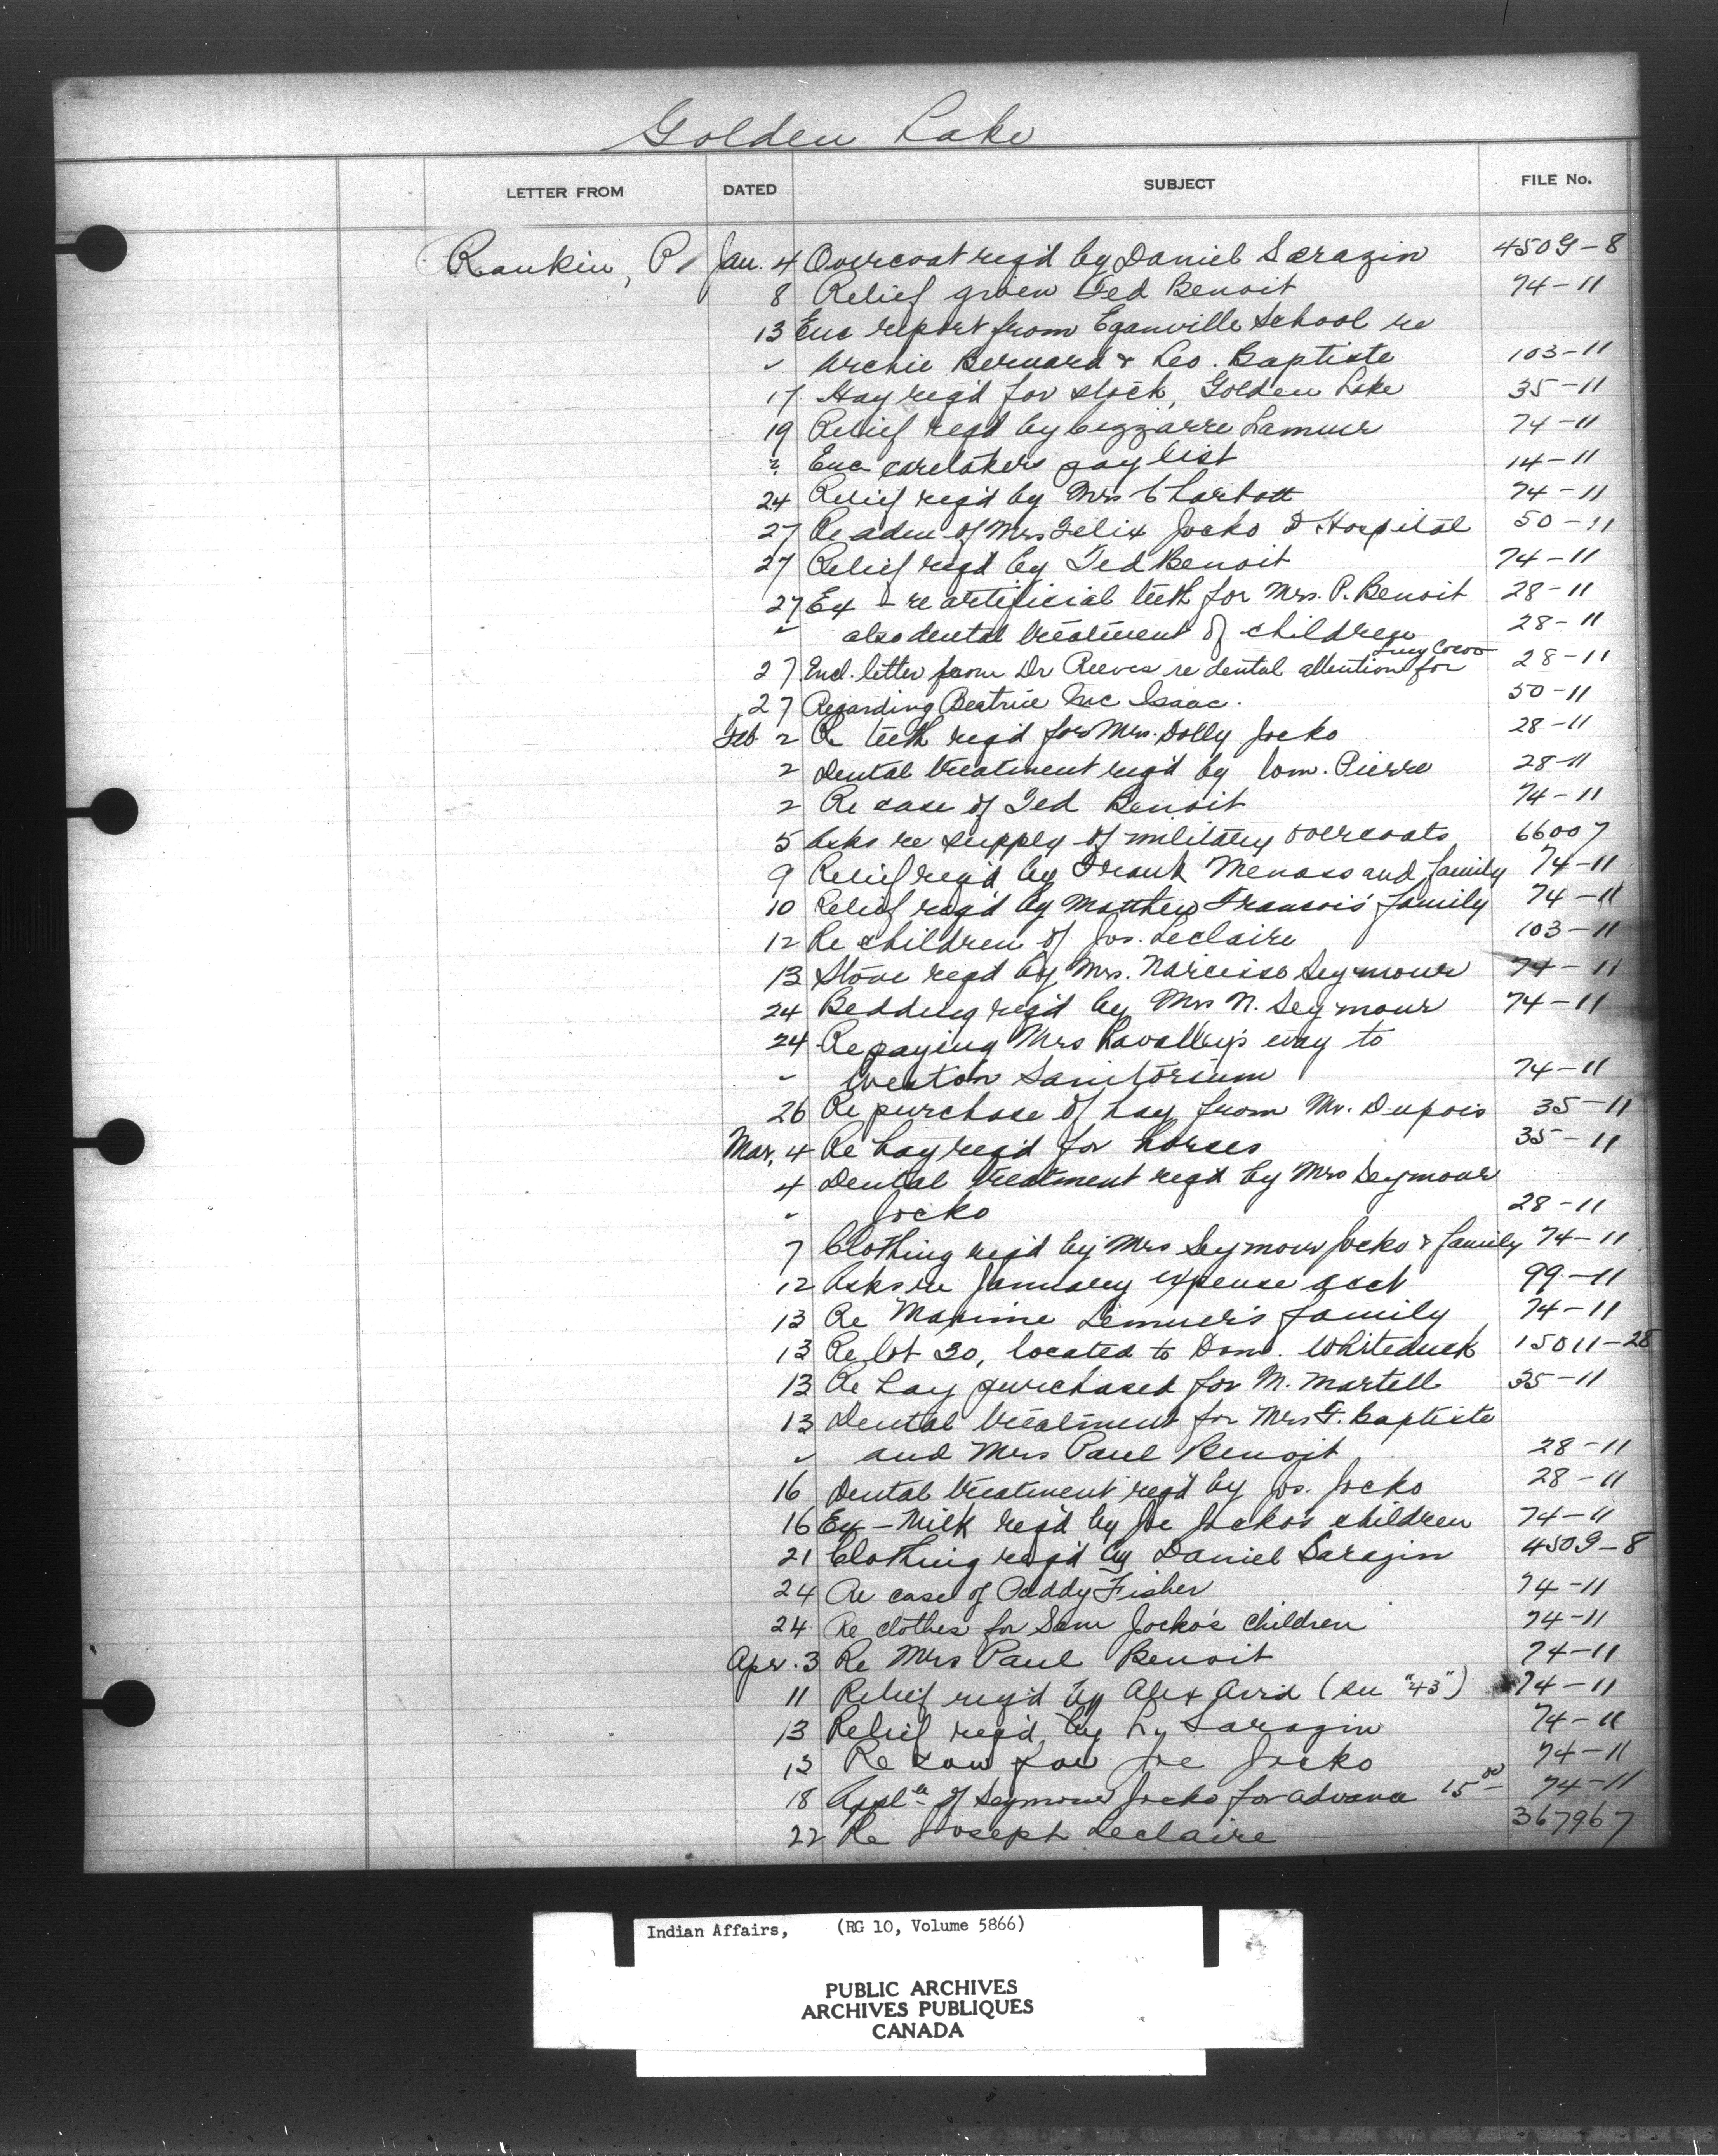 Golden Lake
LETTER FROM DATED SUBJECT FILE No.
Rankin, P. Jan. 4 Overcoat req'd by Daniel Sarazin 4509-8
8 Relief given Ted Benoit 74-11
13 Enc report from Eganville School re
" Archie Bernard & Leo. Baptiste 103-11
17 Hay req'd for stock, Golden Lake 35-11
19 Relief reqd by Lamure 74-11
" Enc caretakers pay list 14-11
24 Relief req'd by Mrs 74-11
27 Re adm of Mrs Felix Jocko to Hospital 50-11
27 Relief req'd by Ted Benoit 74-11
27 Ex - re artificial teeth for Mrs. P. Benoit 28-11
" also dental treatment of children 28-11
27 Encl. letter from Dr Reeves re dental attention for Lucy Cocoo 28-11
27 Regarding Beatrice Mc Isaac. 50-11
Feb. 2 Re teeth req'd for Mrs. Dolly Jocko 28-11
2 Dental treatment req'd by Wm. Pierre 28-11
2 Re case of Ted Benoit 74-11
5 Asks re supply of military overcoats 66007
9 Relief req'd by Frank Menass and family 74-11
10 Relief req'd by Matthew Francois' family 74-11
12 Re children of Jos. Leclaire 103-11
13 Stove req'd by Mrs. Narcisse Seymour 74-11
24 Bedding req'd by Mrs N. Seymour 74-11
24 Re paying Mrs Lavalley's way to
" Weston Sanitorium 74-11
26 Re purchase of hay from Mr. Dupois 35-11
Mar. 4 Re hay req'd for horses 35-11
4 Dental treatment reqd by Mrs Seymour
" Jocko 28-11
7 Clothing req'd by Mrs Seymour Jocko & family 74-11
12 Asks re January expense acct 99-11
13 Re Maxime Lemuer's family 74-11
13 Re lot 30, located to Dom. Whiteduck 15011-28
13 Re hay purchased for M. Martell 35-11
13 Dental treatment for Mrs F. Baptiste
" and Mrs Paul Benoit 28-11
16 Dental treatment req'd by Jos. Jocko 28-11
16 Ex - Milk req'd by Joe Jocko's children 74-11
21 Clothing req'd by Daniel Sarazin 4509-8
24 Re case of Paddy Fisher 74-11
24 Re clothes for Sam Jocko's children 74-11
Apr. 3 Re Mrs Paul Benoit 74-11
11 Relief req'd by Alex Avrid (see "43") 74-11
13 Relief req'd by Ly Sarazin 74-11
13 Re cow for Joe Jocko 74-11
18 Appl'n of Seymour Jocko for advance 15 00 74-11
22 Re Joseph Leclaire 367967
Indian Affairs, (RG 10, Volume 5866)
PUBLIC ARCHIVES
ARCHIVES PUBLIQUES
CANADA